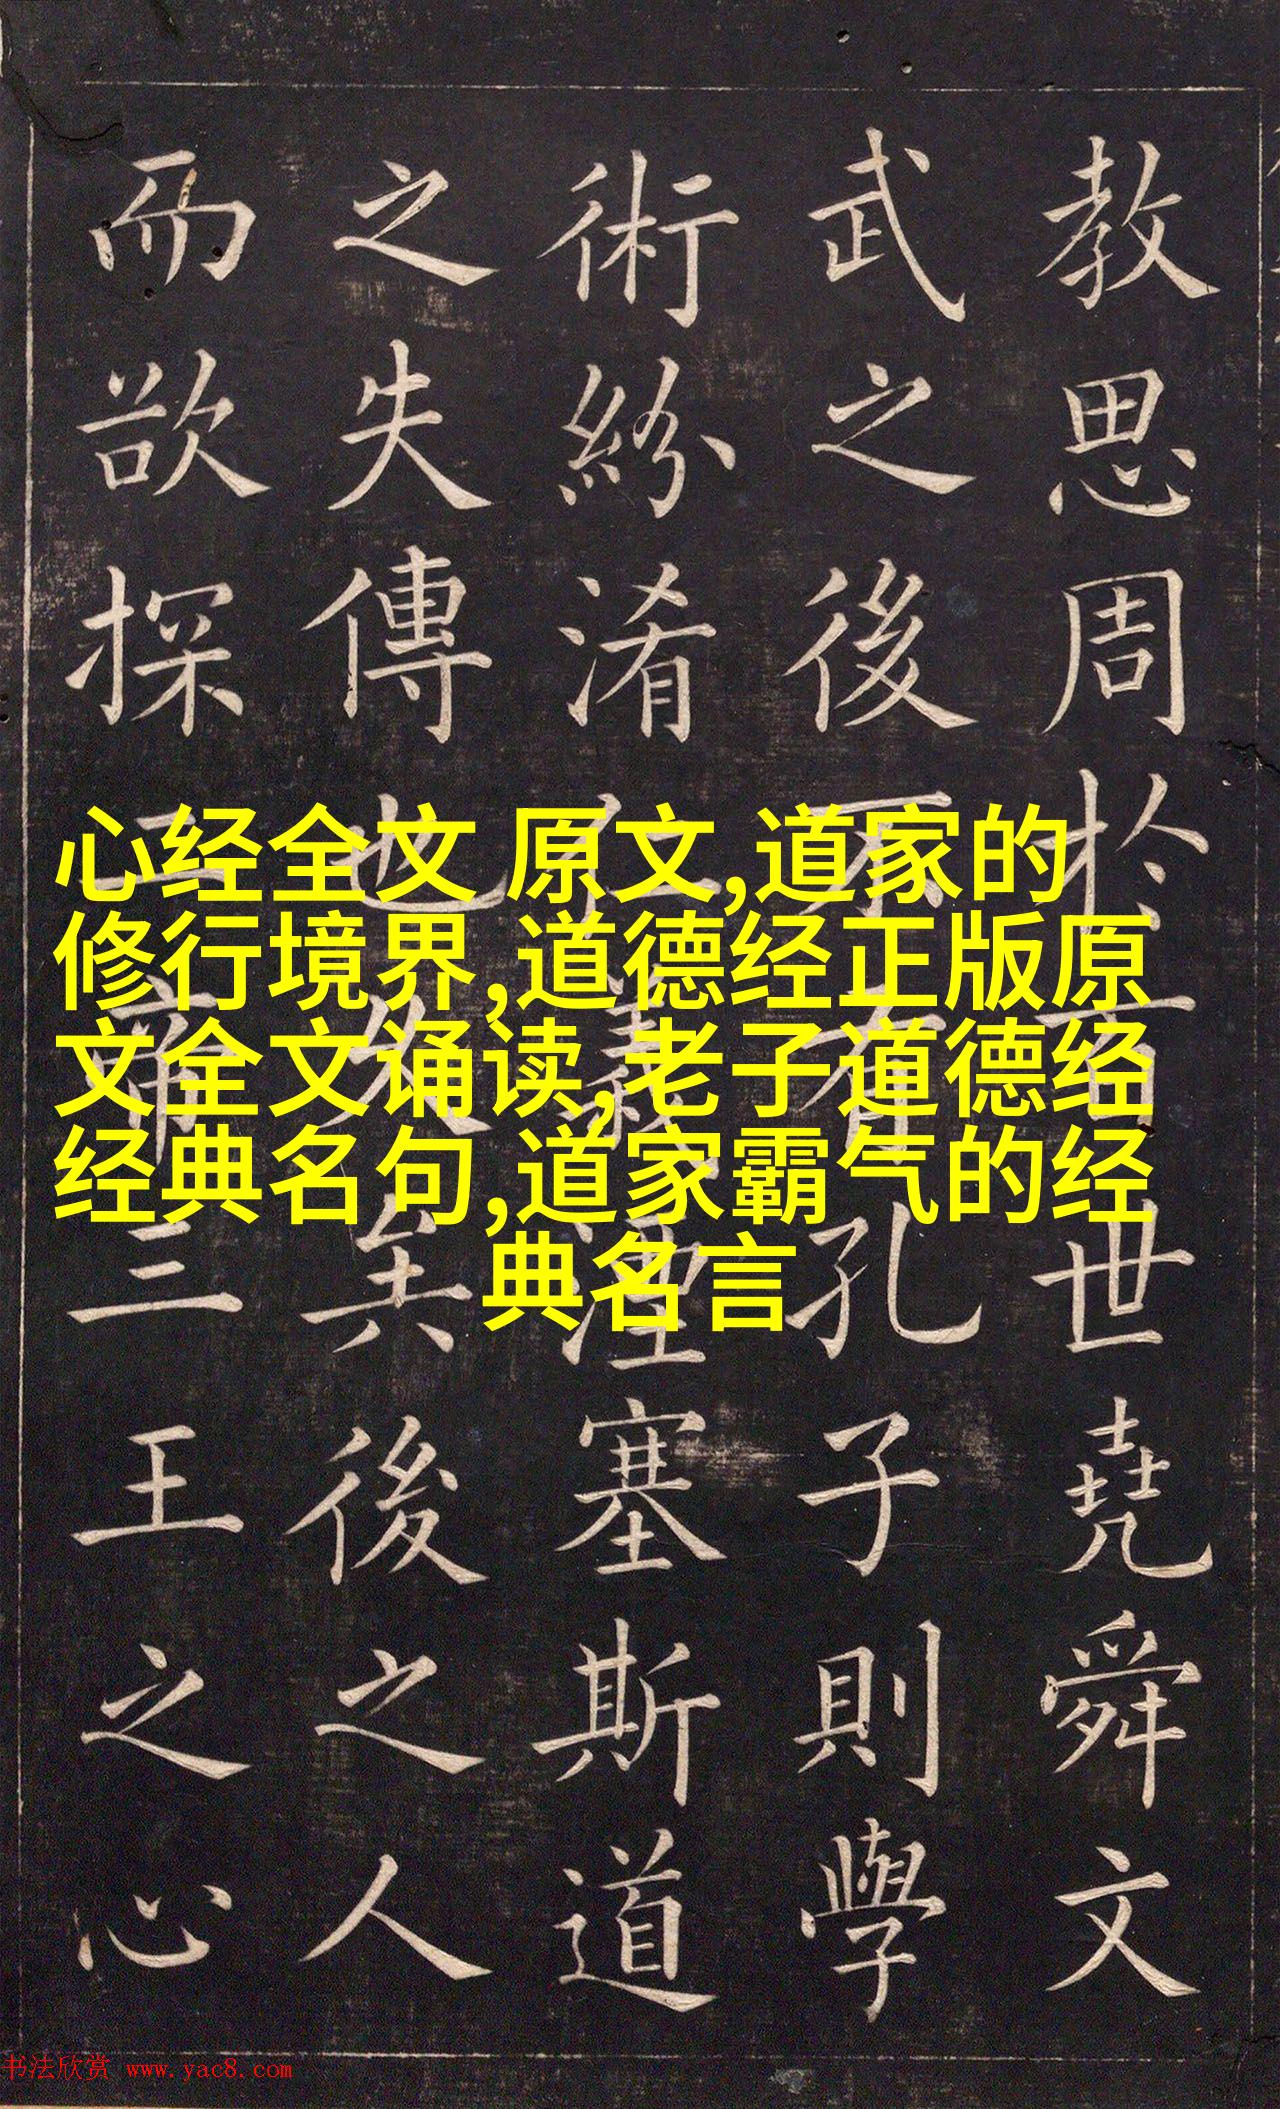 教思周於百世堯舜文
武之後不有孔子則學
術紛淆仁義湮塞斯道
之失傳也久矣後之人
而欲探二帝三王之心
心经全文 原文,道家的
修行境界,道德经正版原
文全文诵读,老子道德经
经典名句,道家霸气的经
典名言
书法欣赏 www.yac8.com